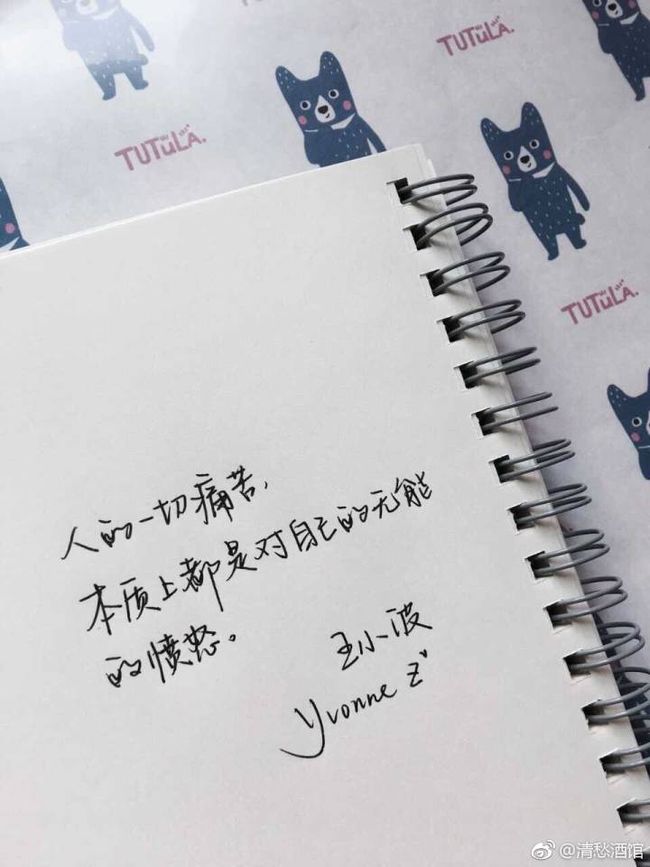 TUTULA.
TUTULA.
TUTULA.
人的一切痛苦,
本质上都是对自己的无能
的愤怒。
王小波
Yvonne Z
@清愁酒馆